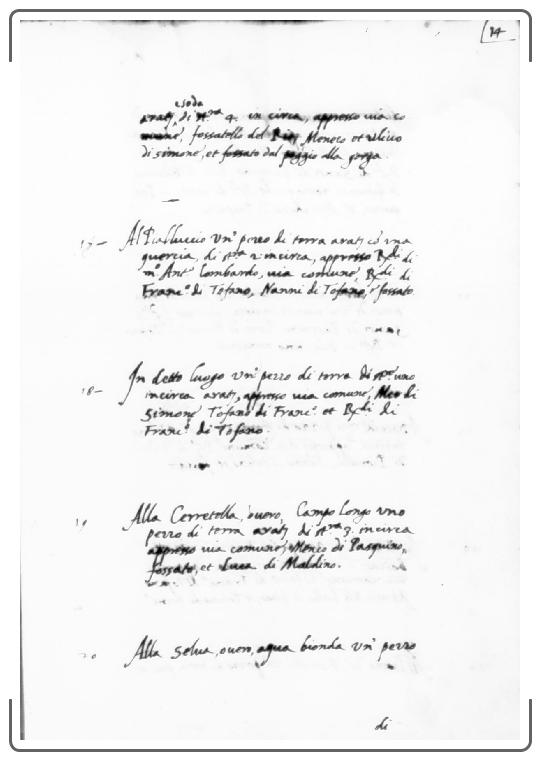 24
e soda
arat, di st.ra 4. in circa, appresso via co
mune, fossatello del Meneco et
di simone, et fossato dal poggio alla
17 - Al Un.o pezzo di terra arat, cõ una
quercia, di st.ra 2. incirca, appresso R.di di
m.o Ant.o Lombardo, via comune, R.di di
Franc.o di Tofano, Nanni di Tofano, e fossato.
18 - In detto luogo un.o pezzo di terra di st.ro uno
incirca arat, appresso via comune, di
Simone Tofano di Franc.o et R.di di
Franc.o di Tofano.
19 Alla Cerretella, overo, Campo longo uno
pezzo di terra arat, di st.ra 3. incirca
appresso via comune, Menco di Pasquino,
fossato, et Luca di Maldino.
20 Alla Selva, overo, aqua bionda un.o pezzo
di